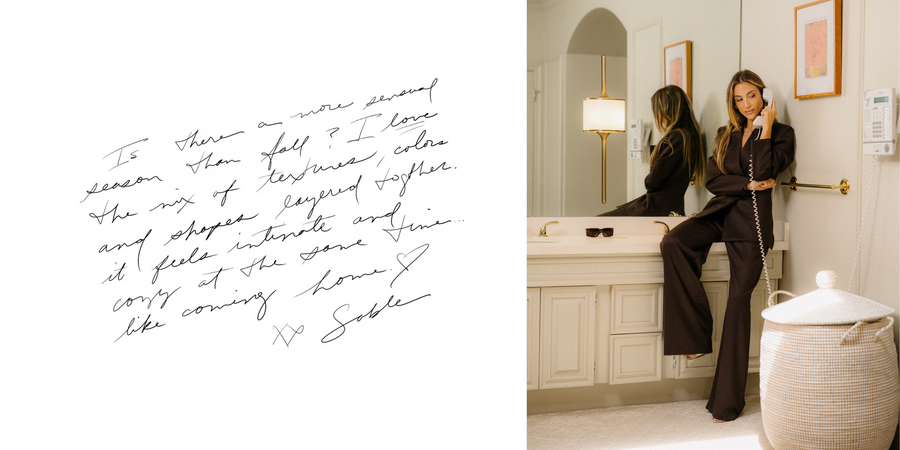 Is there a more sensual
season than fall? I love
the mix of textures, colors
and shapes layered togther.
it feels intimate and
cozy at the same time...
like coming home.♡
xx Sable